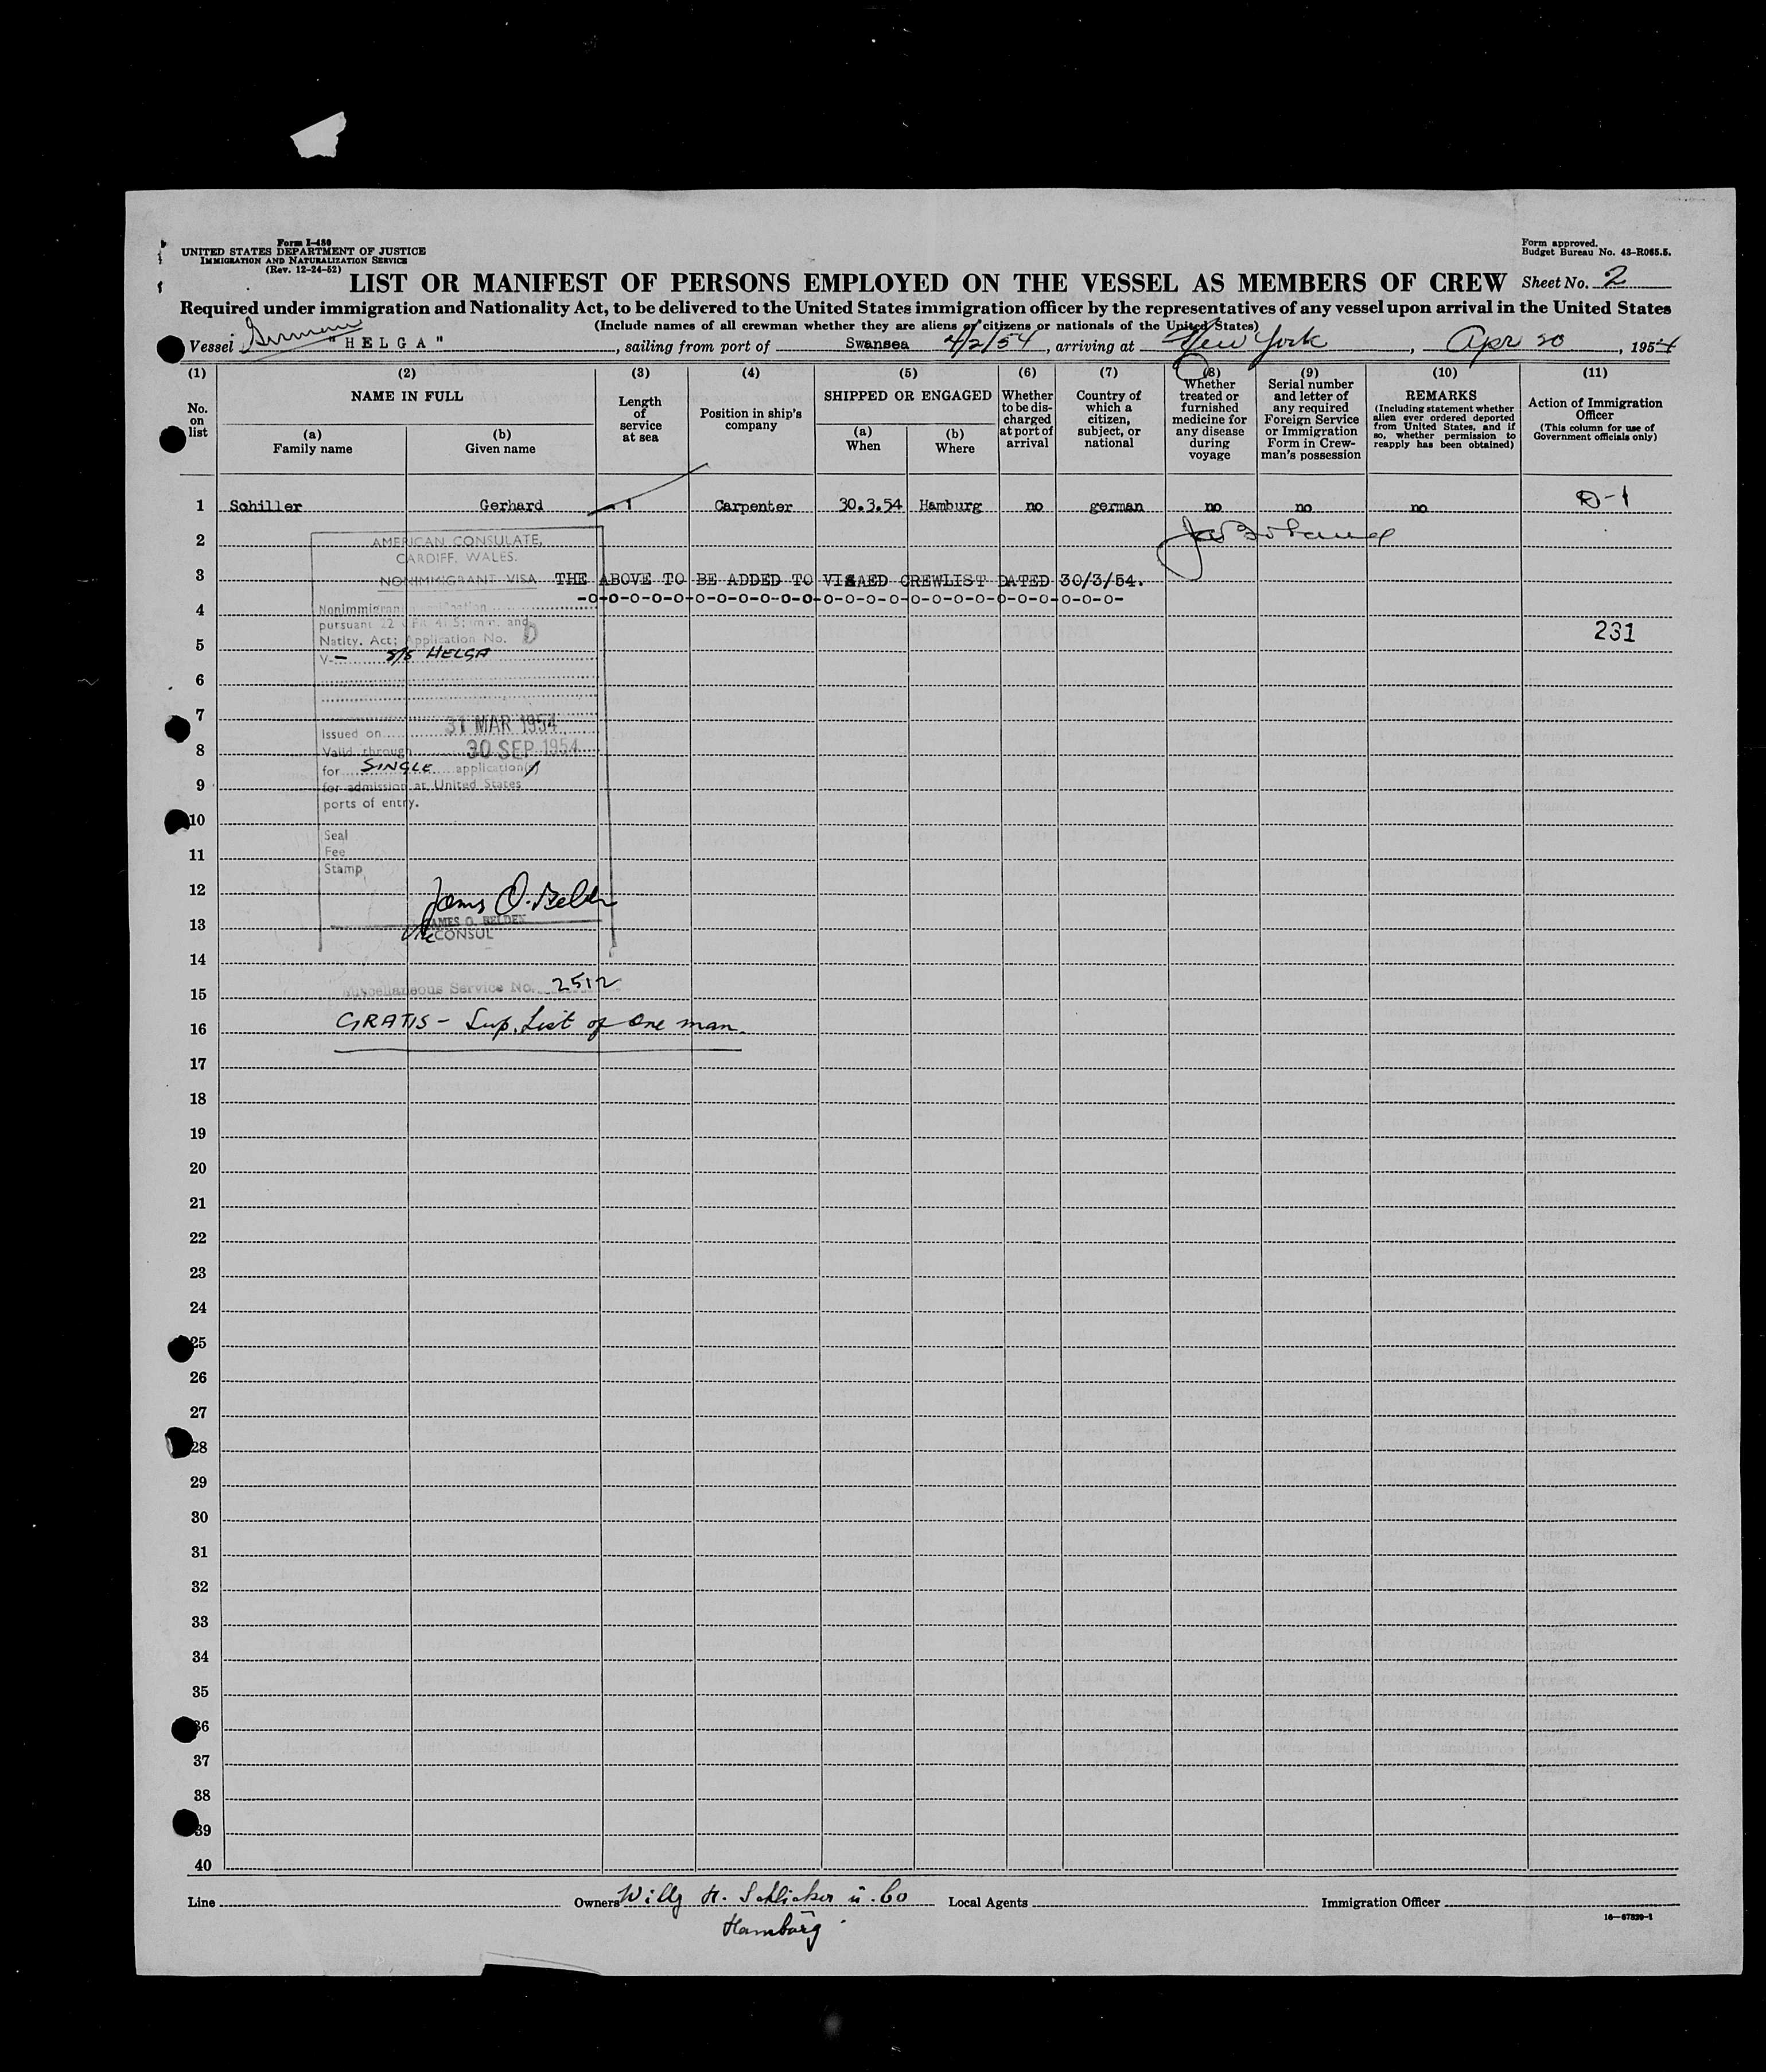 Form I-480
UNITED STATES DEPARTMENT OF JUSTICE
IMMIGRATION AND NATURALIZATION SERVICE
(Rev. 12-24-52)
Form approved.
Budget Bureau No. 43-R065.5.
LIST OR MANIFEST OF PERSONS EMPLOYED ON THE VESSEL AS MEMBERS OF CREW Sheet No. 2
Required under immigration and Nationality Act, to be delivered to the United States immigration officer by the representatives of any vessel upon arrival in the United States
(Include names of all crewman whether they are aliens or citizens or nationals of the United States)
Vessel German "HELGA", sailing from port of Swansea 4/2/54, arriving at New York, Apr 20, 1954
(1) (2) (3) (4) (5) (6) (7) (8) (9) (10) (11)
No. on list
NAME IN FULL
(a) Family name
(b) Given name
Length of service at sea
Position in ship's company
SHIPPED OR ENGAGED
(a) When
(b) Where
Whether to be discharged at port of arrival
Country of which a citizen, subject, or national
Whether treated or furnished medicine for any disease during voyage
Serial number and letter of any required Foreign Service or Immigration Form in Crewman's possession
REMARKS
(Including statement whether alien ever ordered deported from United States, and if so, whether permission to reapply has been obtained)
Action of Immigration Officer
(This column for use of Government officials only)
1 Schiller Gerhard 1 Carpenter 30.3.54 Hamburg no german no no no D-1
2
AMERICAN CONSULATE,
CARDIFF, WALES.
3 NONIMMIGRANT VISA THE ABOVE TO BE ADDED TO VISAED CREWLIST DATED 30/3/54.
-o-o-o-o-o-o-o-o-o-o-o-o-o-o-o-o-o-o-o-o-o-o-
4
Nonimmigrant
pursuant 22 CFR 41.5; Imm. and
Natlty. Act; Application No. D
231
5
V- — S/S HELGA
6
7
Issued on 31 MAR 1954
8 Valid through 30 SEP 1954
for SINGLE application(s)
9 for admission at United States
ports of entry.
10
Seal
11 Fee
Stamp
12
James O. Belden
13 JAMES O. BELDEN
Vice CONSUL
14
15 Miscellaneous Service No. 2512
16 GRATIS - Sup. List of one man.
17
18
19
20
21
22
23
24
25
26
27
28
29
30
31
32
33
34
35
36
37
38
39
40
Line Owners Willy H. Schlieker u. Co Local Agents Immigration Officer
Hamburg
16—67829-1